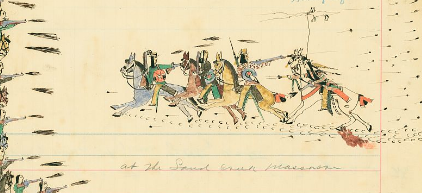 at the Sand creek Massacre